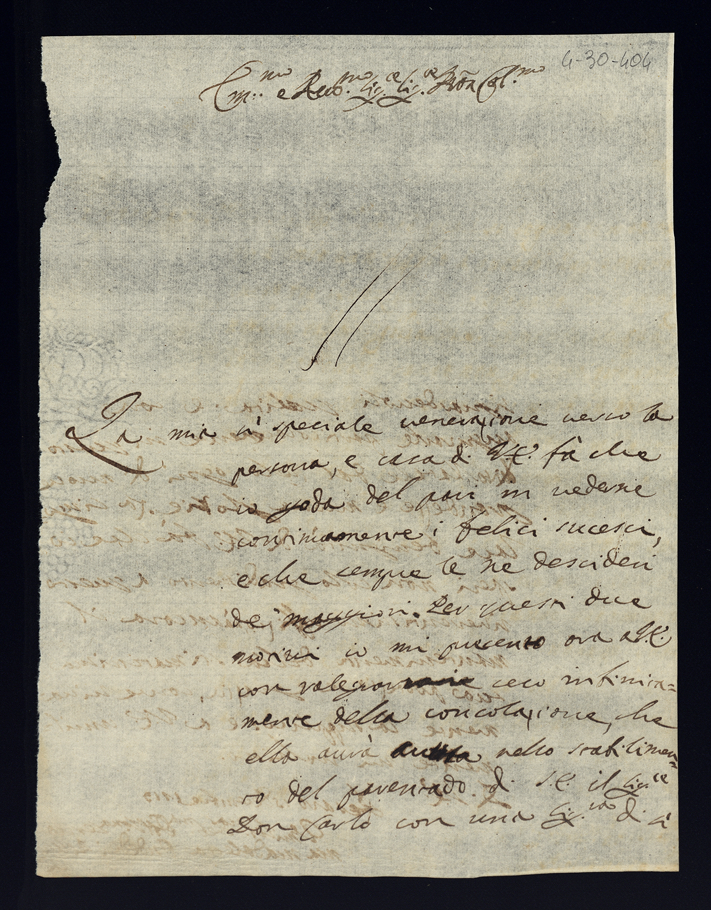 4-30-404
Em.mo e Rev.mo Sig.re Sig.re P̃ron Col.mo
La mia sì speciale venerazione verso la
persona, e casa di V.E. fà che
io goda del pari in vederne
continuamente i felici sucessi,
e che sempre le ne desideri
de' maggiori. Per questi due
motivi io mi presento ora a V.E.
con ralegrarmi seco infinita=
mente della consolazione, che
ella avrà nello stabilimen=
to del parentado di S.E. il Sig.re
Don Carlo con una Sig.ra di sì